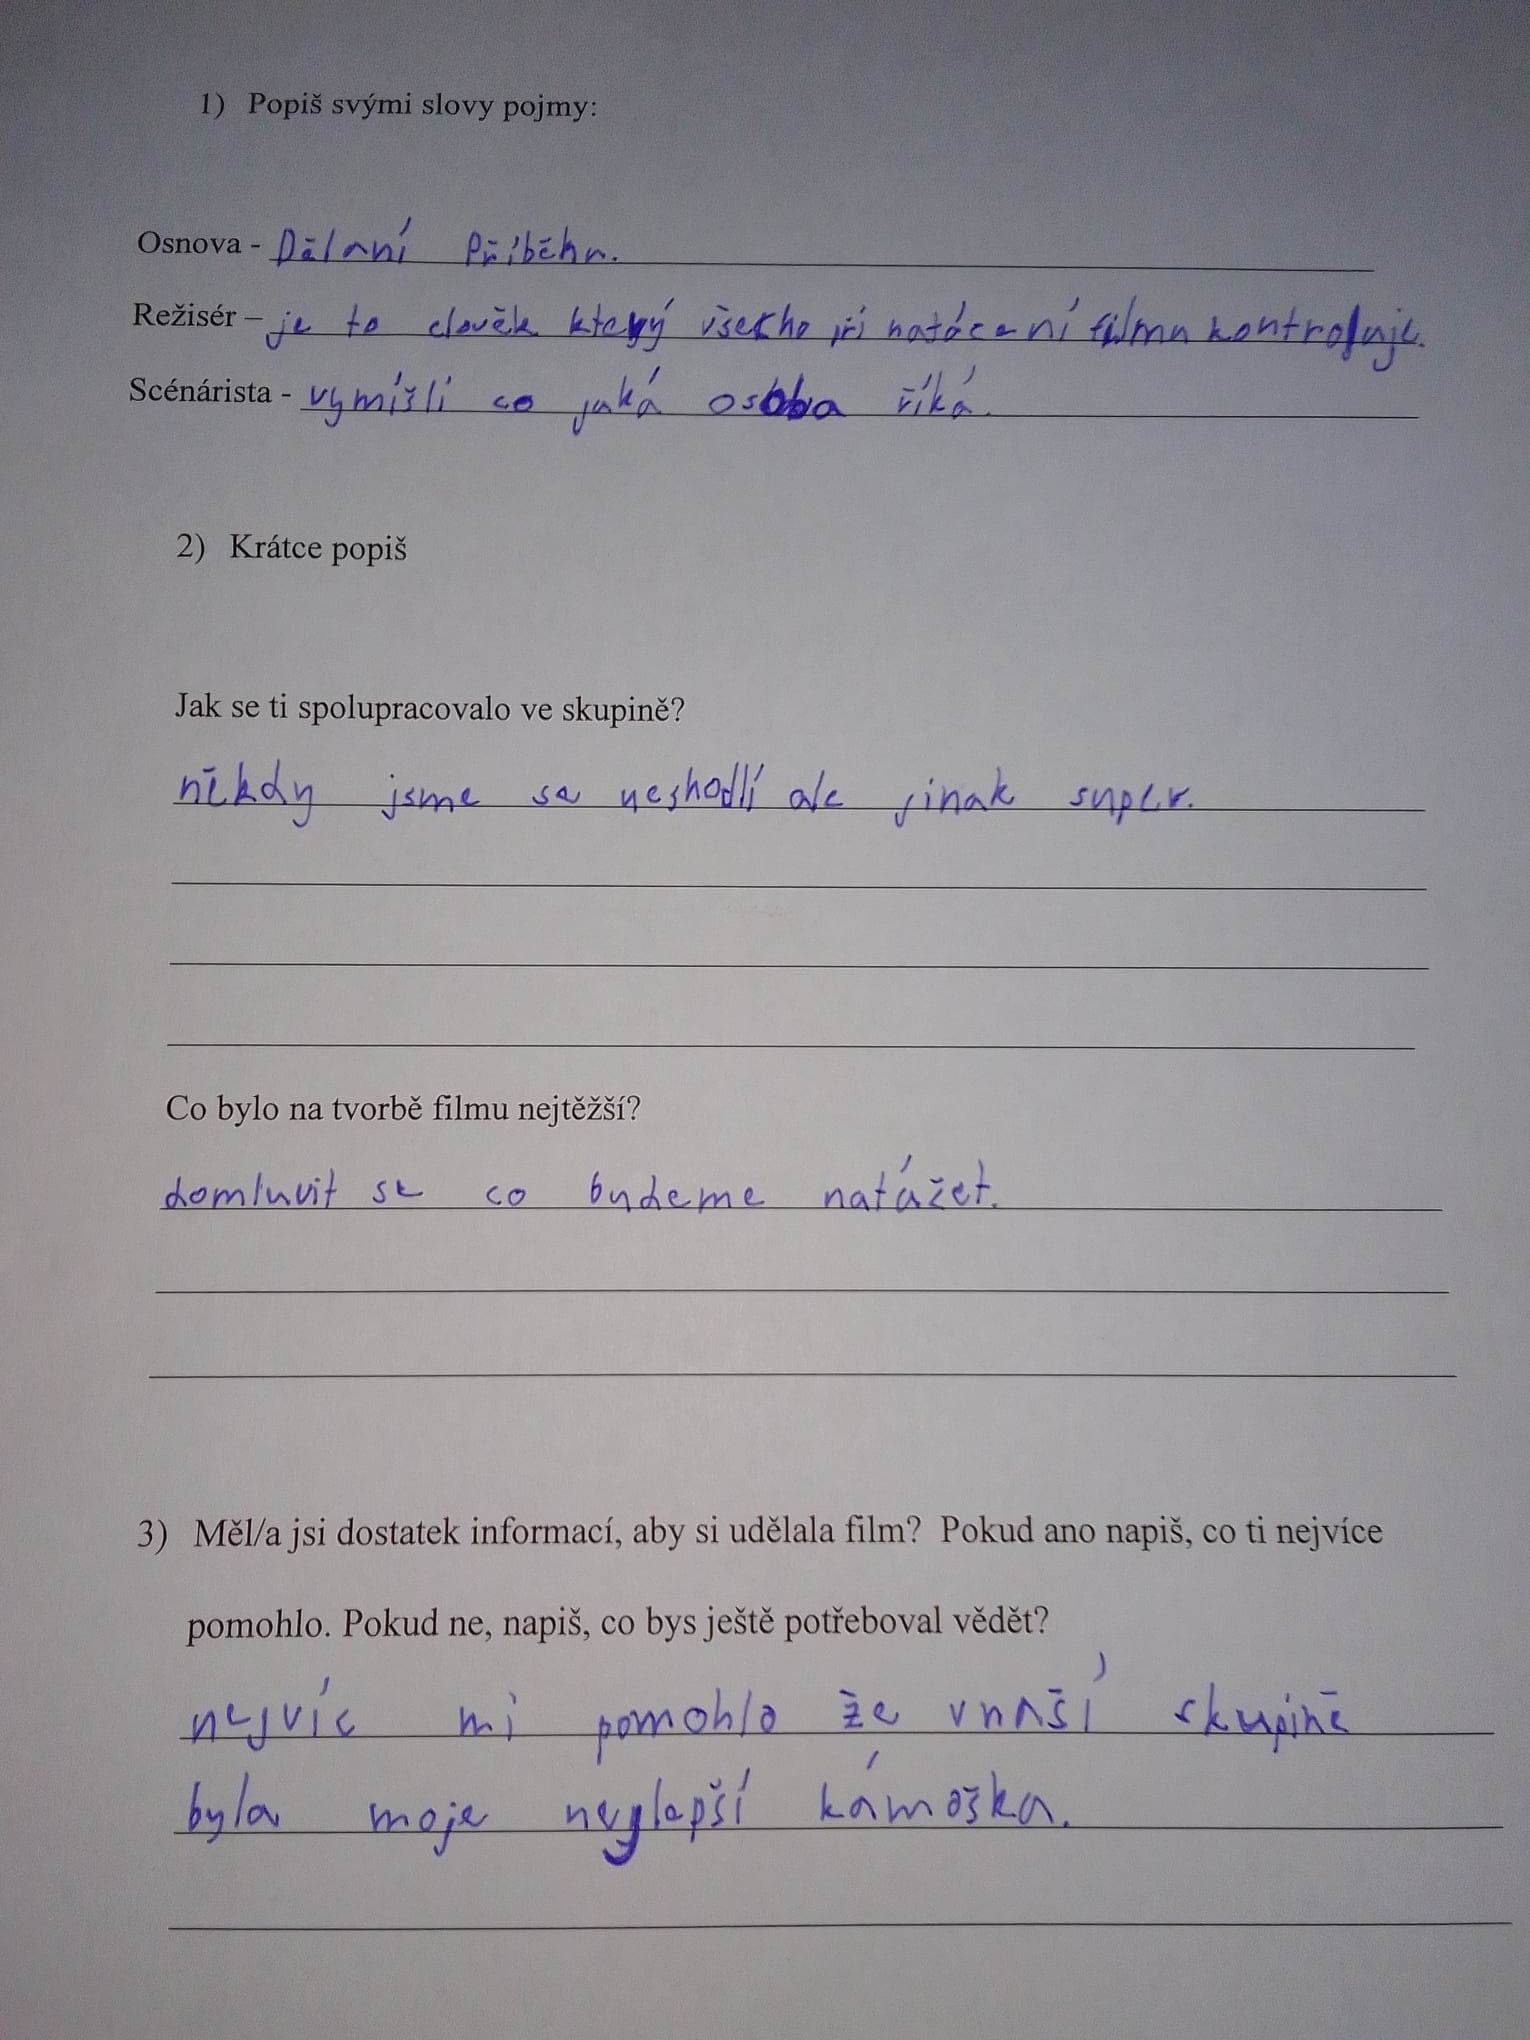 1) Popiš svými slovy pojmy:
Osnova - Dělaní Příběhu.
Režisér – je to clověk který všecho při natácení filmu kontroluje.
Scénárista - vymíšlí co jaká osoba říká.
2) Krátce popiš
Jak se ti spolupracovalo ve skupině?
někdy jsme se neshodlí ale jinak super.
Co bylo na tvorbě filmu nejtěžší?
domluvit se co budeme natáčet.
3) Měl/a jsi dostatek informací, aby si udělala film? Pokud ano napiš, co ti nejvíce
pomohlo. Pokud ne, napiš, co bys ještě potřeboval vědět?
nejvíc mi pomohlo že vnaší skupině
byla moje nejlepší kámoška.